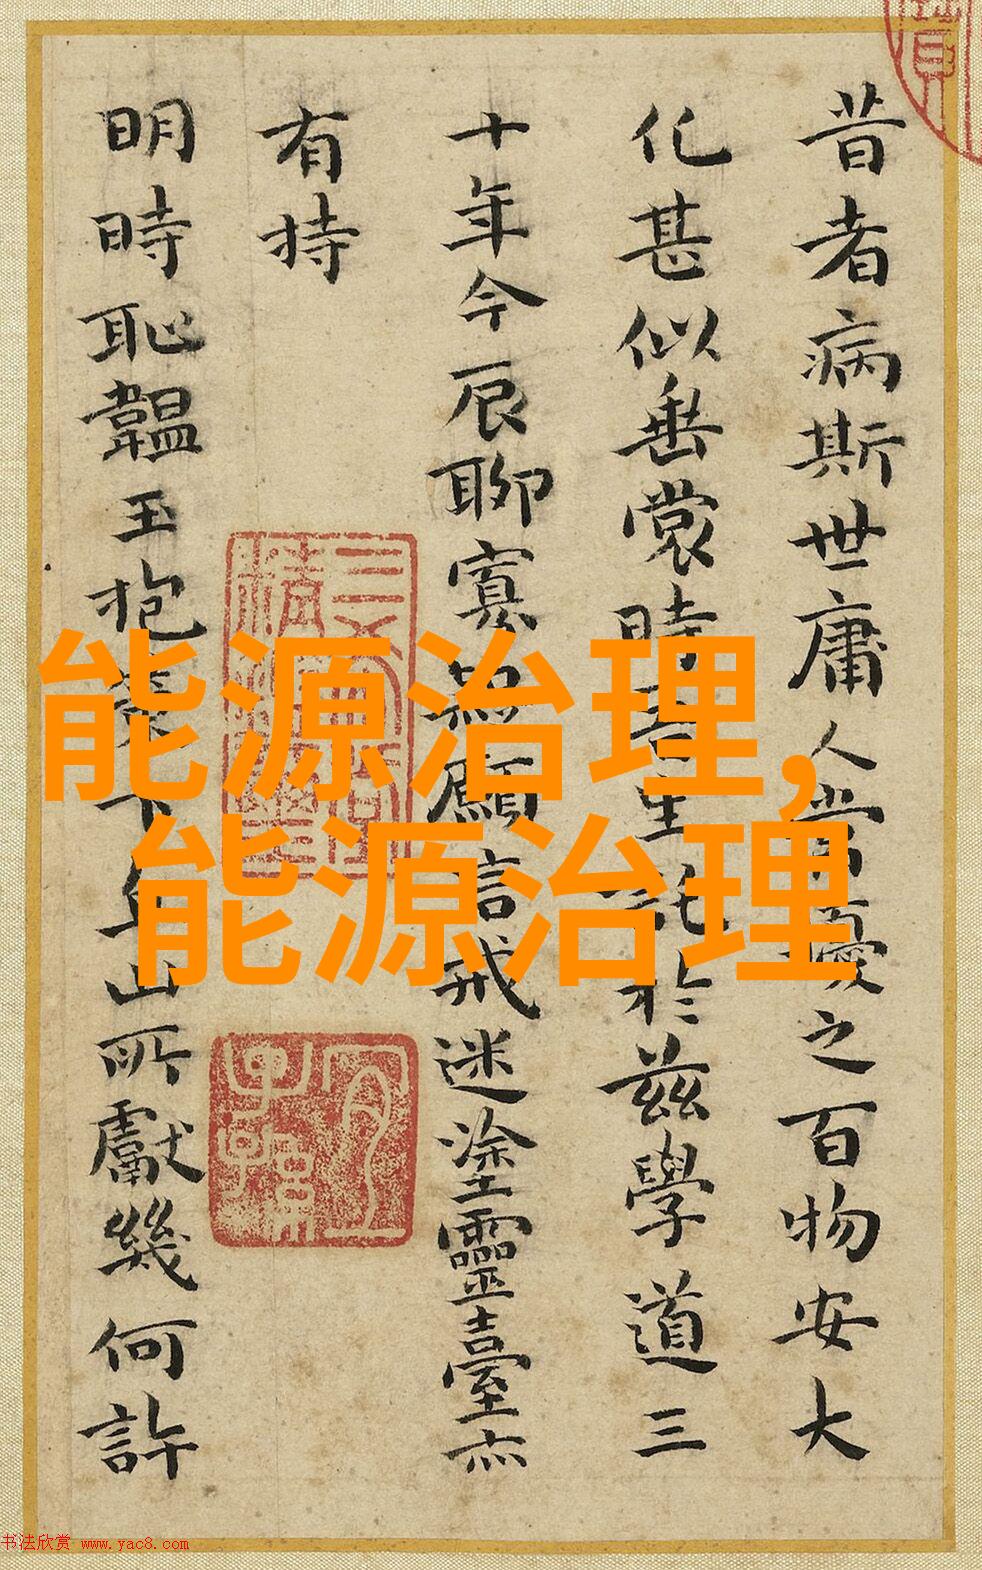 昔者病斯世庸人常憂之百物安大
化甚似垂裳時吾生託於茲學道三
十年今辰聊寡無願言戒迷塗靈臺亦
有持
明時恥韞玉抱 下年山所獻幾何許
能源治理,
能源治理
书法欣赏 www.yac8.com